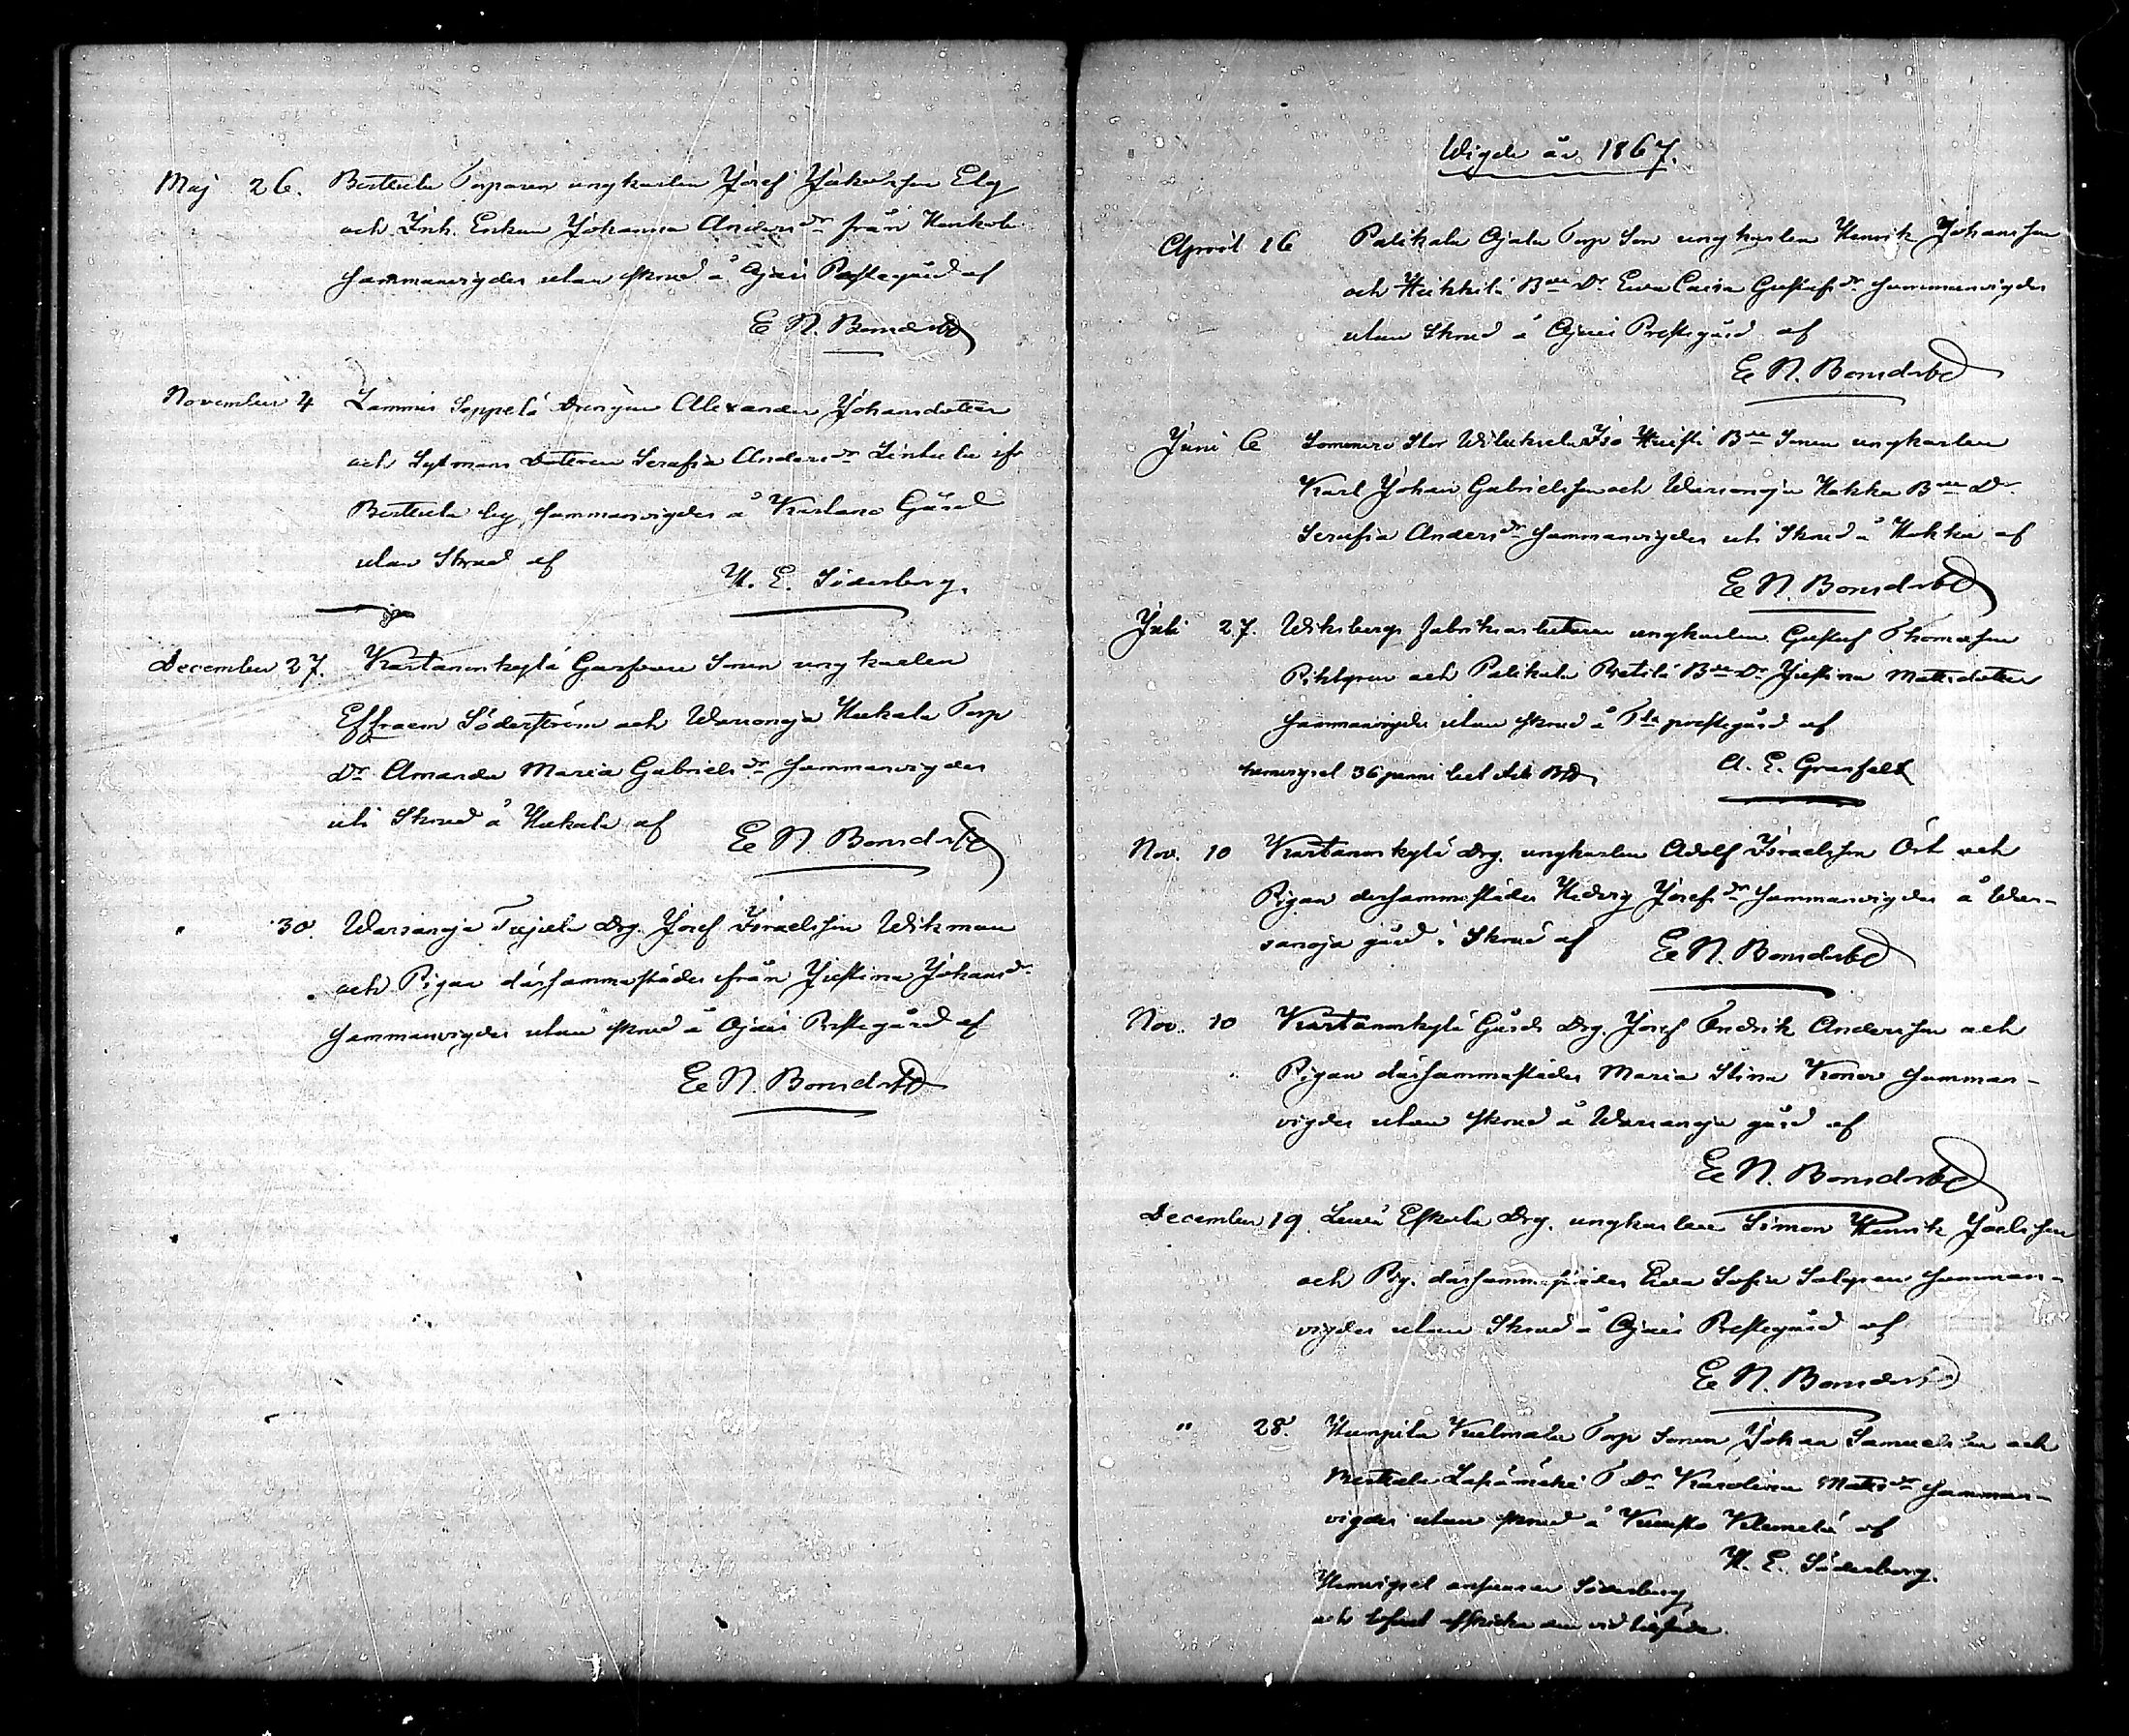 Maj 26. Bertula Torparen ungkarlen Josef Jakobsson Elg
och Inh. Enkan Johanna Anders dr från
sammanvigdes utan skrud å Ojais Prestegård af
E N. Bonsdorff
November 4 Lammis Seppelä Drengen Alexander Johansdotter
och Sytmans Dotteren Serafia Anders dr ifr
Bertula by, sammanvigdes å Kartano Gård
utan Skrud af
H. E. Söderberg.
December 27. Kartanonkylä Garfvare Sonen ungkarlen
Effraem Söderström och Warsanoja Torp
Dr Amanda Maria Gabriels dr sammanvigdes
uti Skrud å af
E N. Bonsdorff
" 30. Warsanoja Drg. Josef Israelsson Wikman
och Pigan därsammastädes från Justina Johansdr
sammanvigdes utan skrud å Ojais Prestegård af
E N. Bonsdorff
Wigde år 1867.
April 16 Palikala Ojala Torp Son ungkarlen Henrik Johansson
och Heikkilä Bde Dr Ewa Caisa Gustafs dr sammanvigdes
utan Skrud å Ojais Prestegård af
E N. Bonsdorff
Juni 6 Somero Stor Iso Bde Sonen ungkarlen
Karl Johan Gabrielsson och Warsanoja Hakka Bde Dr
Serafia Anders dr sammanvigdes uti Skrud å Hakka af
E N. Bonsdorff
Juli 27. Wiksbergs fabriksarbetaren ungkarlen Gustaf Thomasson
och Palikala Bde Dr Justina Mattsdotter
sammanvigdes utan skrud å Tla prestegård af
hemvigsel 36 penni A. E. Granfelt
Nov. 10 Kartanonkylä Drg. ungkarlen Adolf Israelsson Ört och
Pigan dersammastädes Hedvig Josefs dr sammanvigdes å War-
sanoja gård i Skrud af E N. Bonsdorff
Nov. 10 Kartanonkylä Gårds Drg. Josef Fredrik Andersson och
Pigan därsammastädes Maria Stina samman-
vigdes utan skrud å Warsanoja gård af
E N. Bonsdorff
December 19. Eskola Drg. ungkarlen Simon Henrik Joelsson
och Pig. därsammastädes Ewa Sofia Salgren samman-
vigdes utan Skrud å Ojais Prestegård af
E N. Bonsdorff
" 28. Humpila Torp Sonen Johan Samuelsson och
Bertula T Dr Karolina Matts dr samman-
vigdes utan skrud å Klemelä af
H. E. Söderberg.
Hemvigsel Söderberg
och